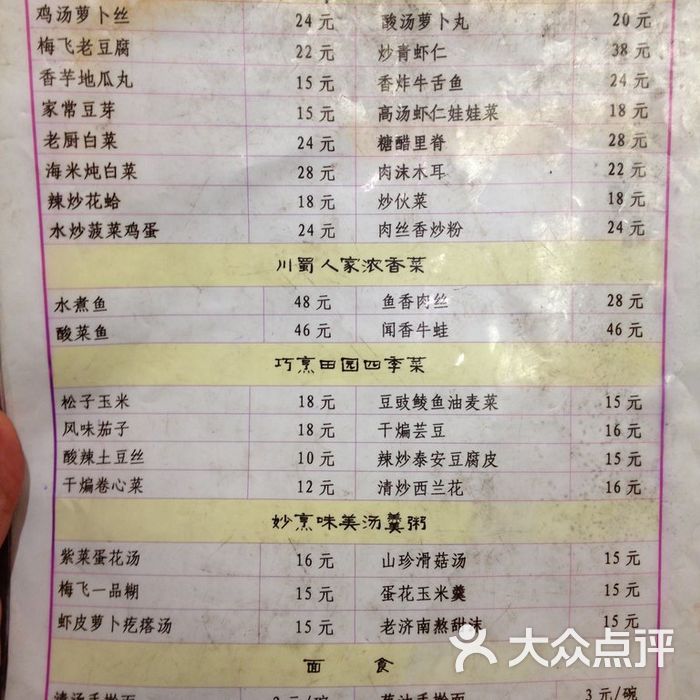 鸡汤萝卜丝 24 元 酸汤萝卜丸 20 元
梅飞老豆腐 22 元 炒青虾仁 38 元
香芋地瓜丸 15 元 香炸牛舌鱼 24 元
家常豆芽 15 元 高汤虾仁娃娃菜 18 元
老厨白菜 24 元 糖醋里脊 28 元
海米炖白菜 28 元 肉沫木耳 22 元
辣炒花蛤 18 元 炒伙菜 18 元
水炒菠菜鸡蛋 24 元 肉丝香炒粉 24 元
川蜀人家浓香菜
水煮鱼 48 元 鱼香肉丝 28 元
酸菜鱼 46 元 闻香牛蛙 46 元
巧烹田园四季菜
松子玉米 18 元 豆豉鲮鱼油麦菜 15 元
风味茄子 18 元 干煸芸豆 16 元
酸辣土豆丝 10 元 辣炒泰安豆腐皮 15 元
干煸卷心菜 12 元 清炒西兰花 16 元
妙烹味美汤羹粥
紫菜蛋花汤 16 元 山珍滑菇汤 15 元
梅飞一品糊 15 元 蛋花玉米羹 15 元
虾皮萝卜疙瘩汤 15 元 老济南熬甜沫 15 元
面食
清汤手擀面 3 元/碗 葱油手擀面 3 元/碗
大众点评